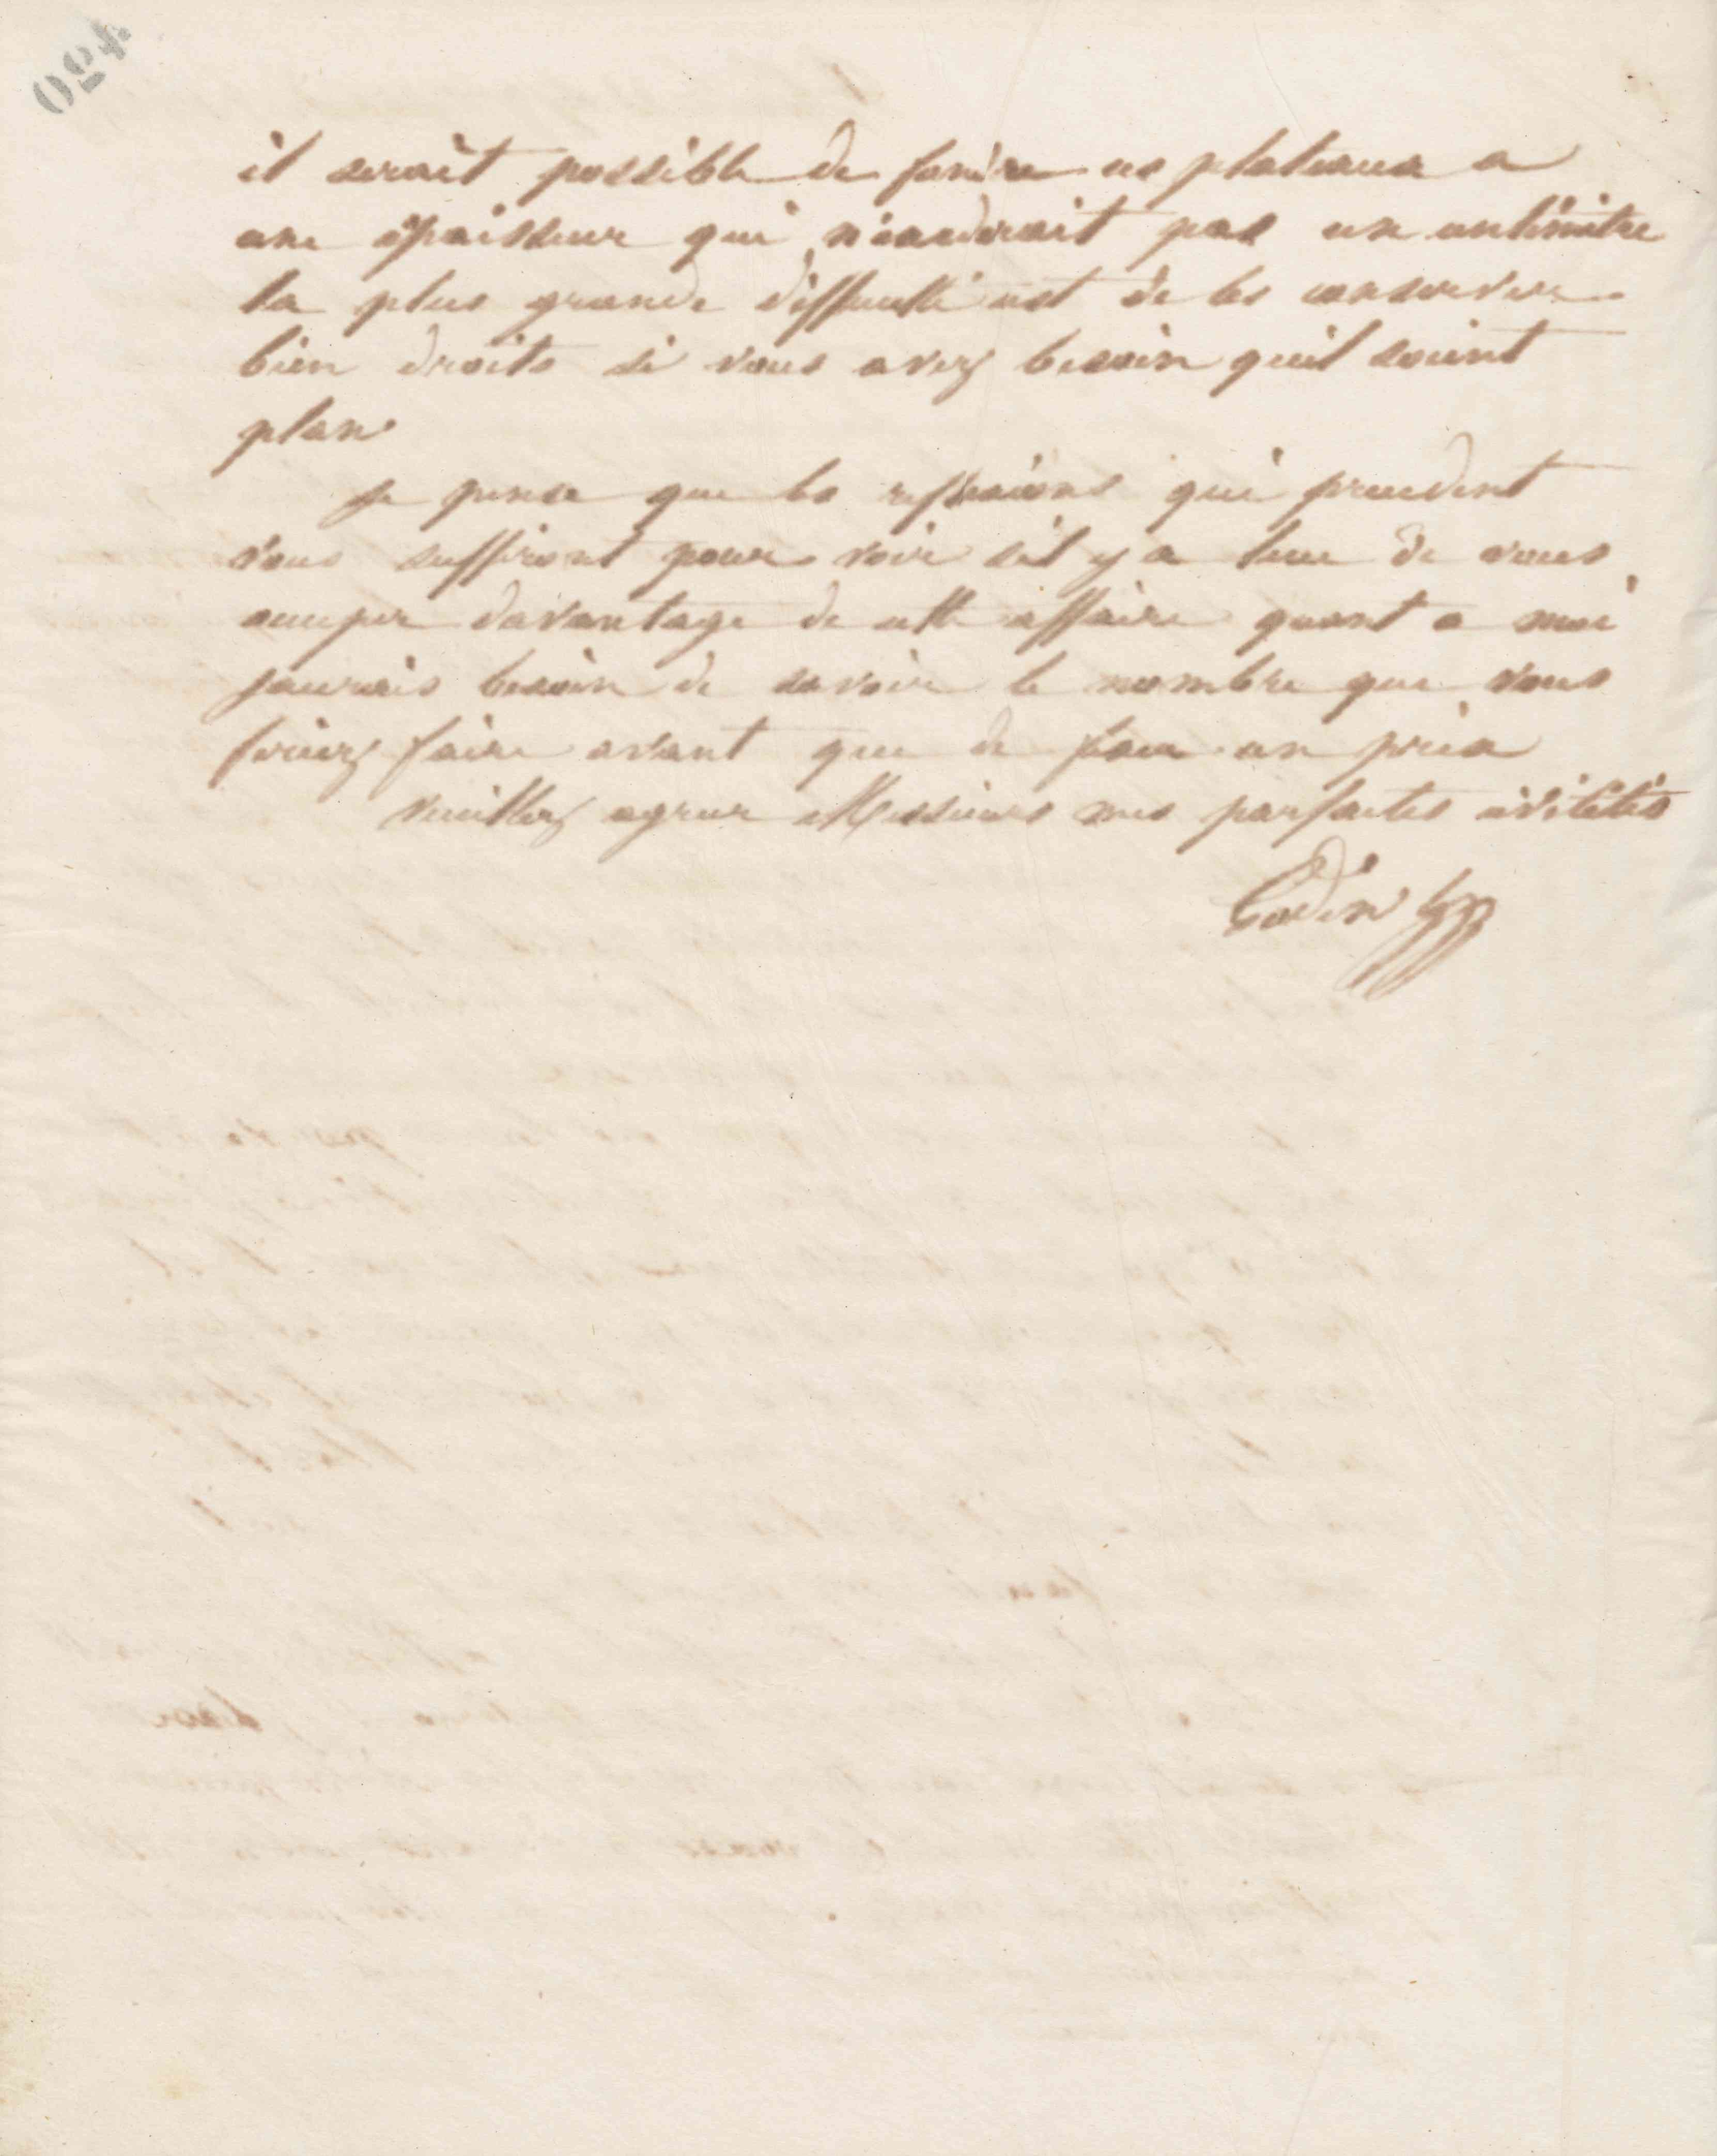 il serait possible de fondre ces plateaux a
une épaisseur qui n'excederait pas un centimètre
la plus grande difficulté est de les conserver
bien droits si vous avez besoin quil soient
plan
Je pense que les reflexions qui precedent
vous suffiront pour voir sil y a lieu de vous
occuper davantage de cette affaire quant a moi
jaurais besoin de savoir le nombre que vous
feriez faire avant que de fixer un prix
Veuillez agreer Messieurs mes parfaites civilités
Godin